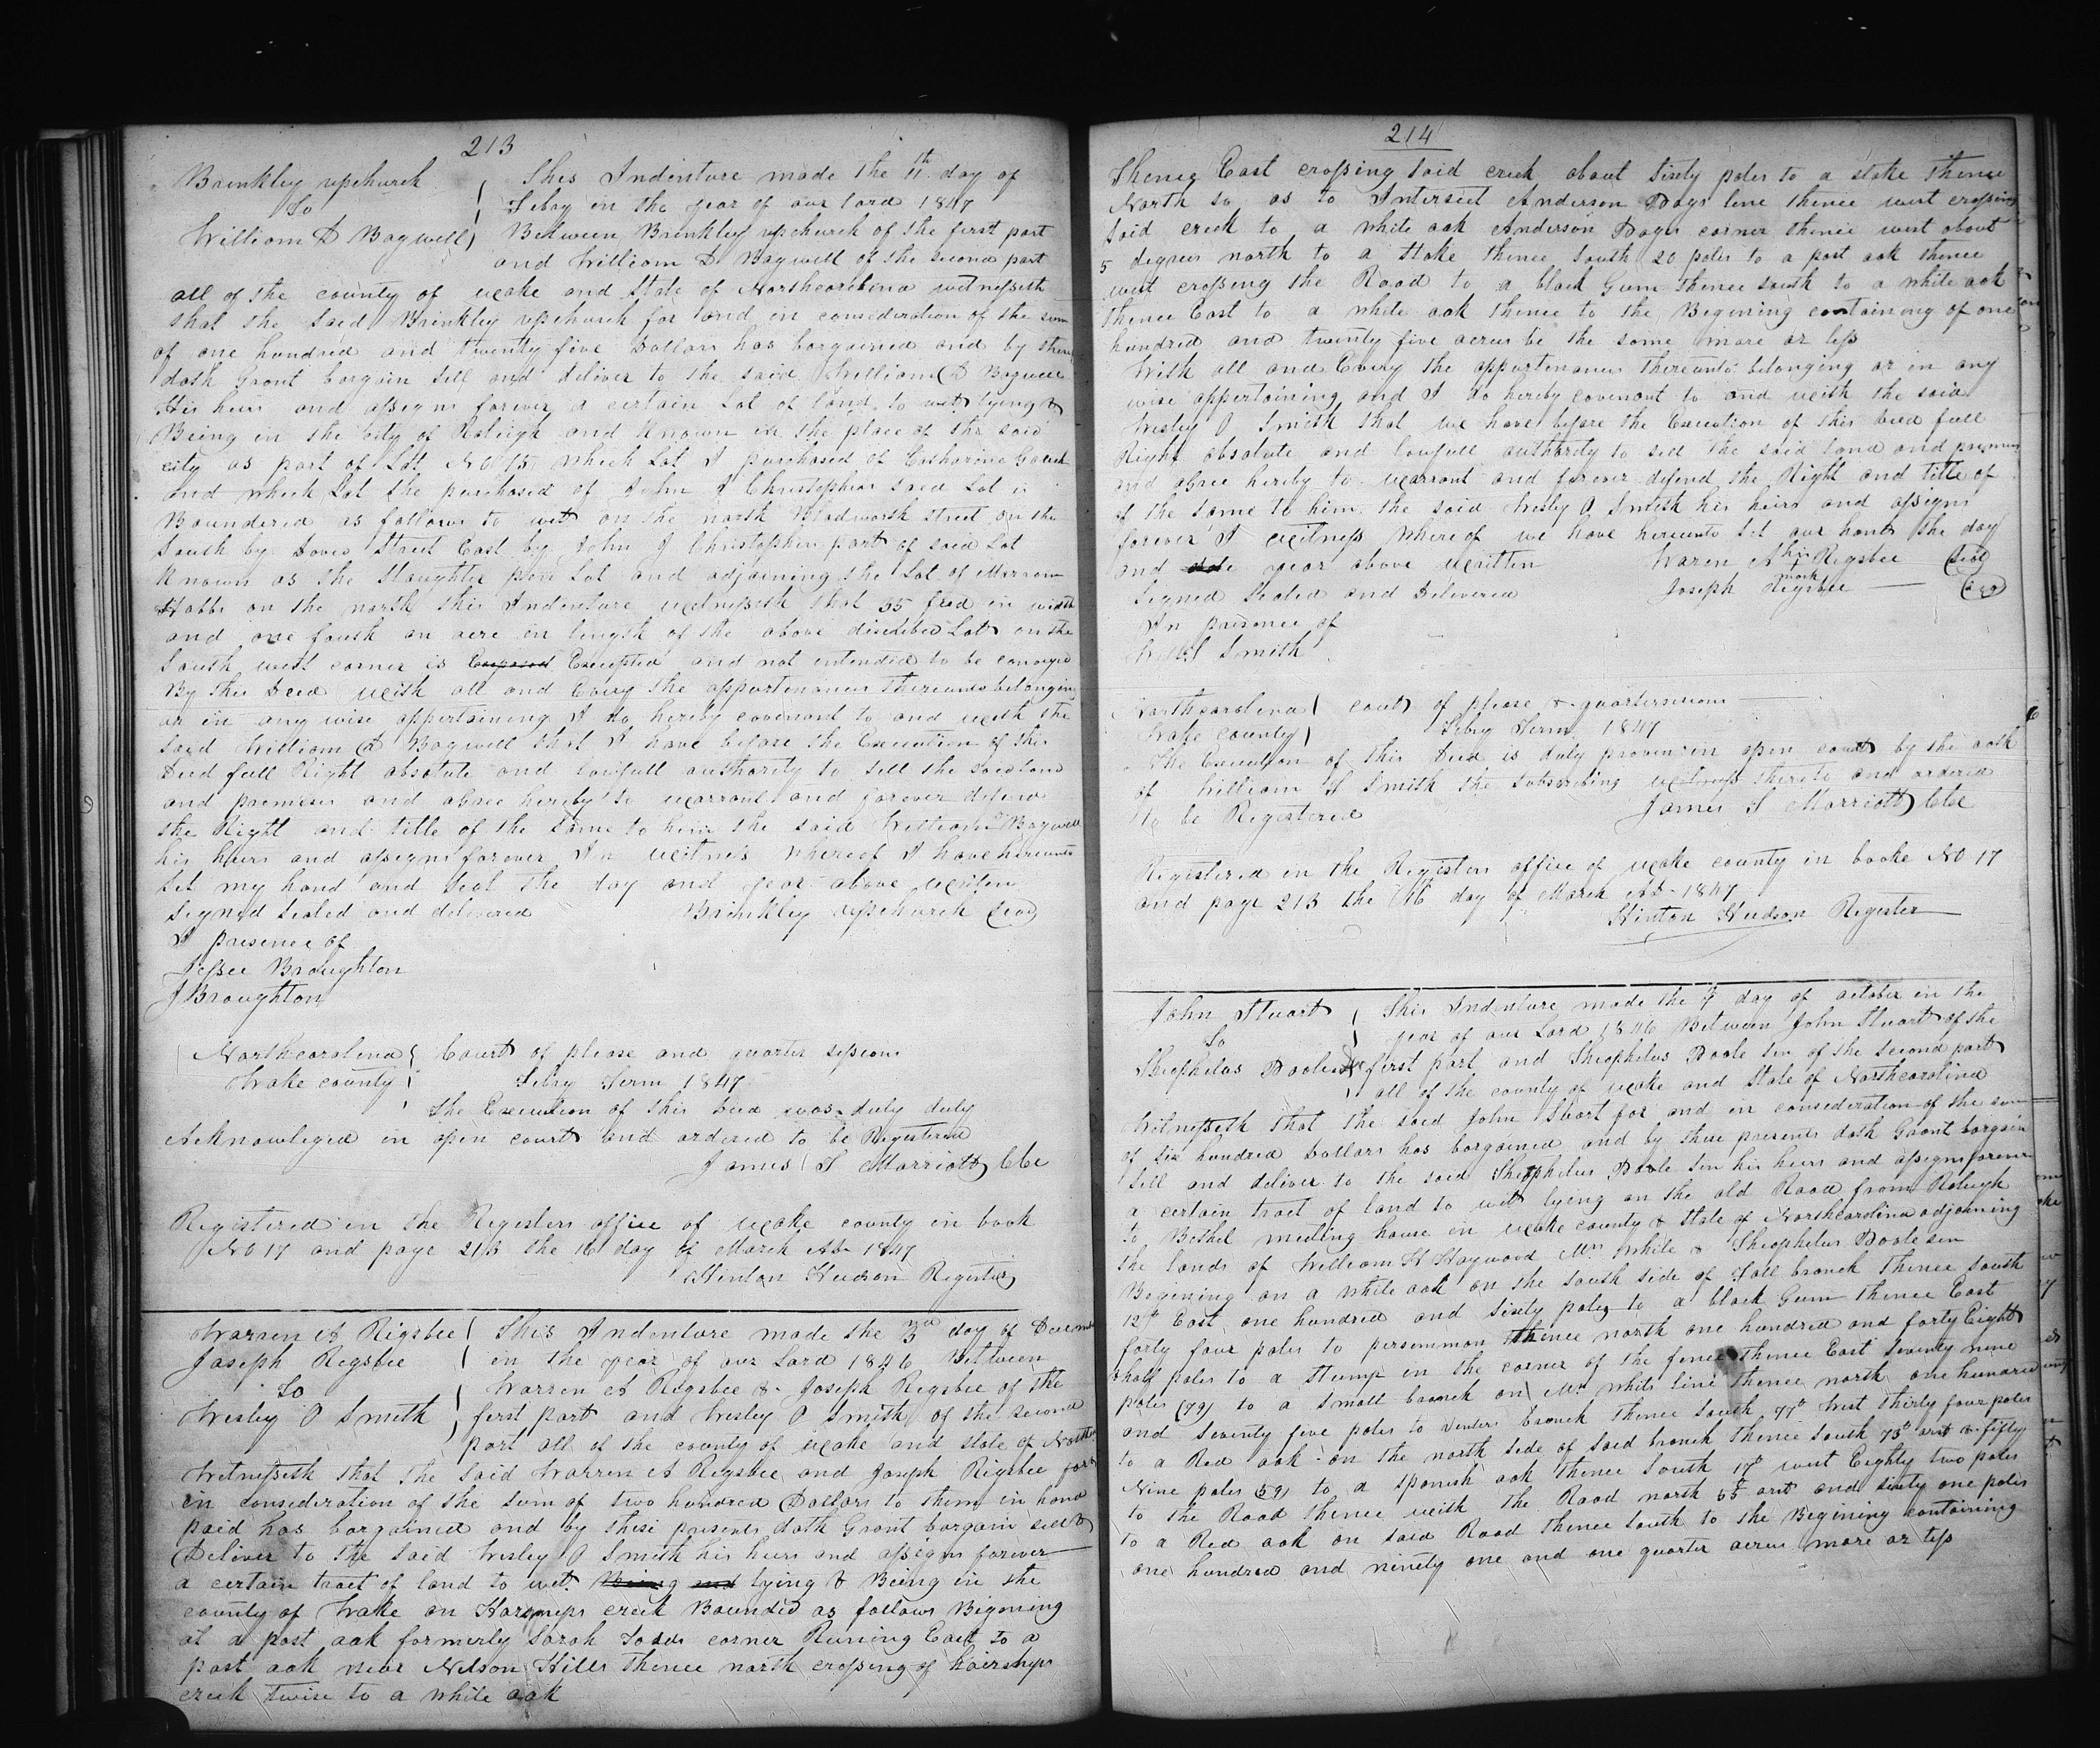 213
Brinkley upchurch
To
William D Bagwell
This Indenture made the 11th day of
Febry in the year of our lord 1847
Between Brinkley upchurch of the first part
and William D Bagwell of the second part
all of the county of wake and State of Northcarolina witnesseth
that the said Brinkley upchurch for and in consideration of the sum
of one hundred and twenty five Dollars has bargained and by these
doth Grant bargain sell and deliver to the said William D Bagwell
His heirs and assigns forever a certain Lot of land to wit lying &
Being in the city of Raleigh and Known in the place of the said
city as part of Lot No 15 which Lot I purchased of Catharine
and which Lot she purchased of John J Christophers said Lot is
Boundered as follows to wit on the north Bloodworth Street on the
South by Street East by John J Christophers part of said Lot
Known as the Slaughter pen Lot and adjoining the Lot of
Hobbs on the north this Indenture witnesseth that 35 feet in width
and one fouth an acre in length of the above discribed Lot on the
South west corner is Excepted and not intended to be conveyed
By this Deed with all and Every the appurtenances thereunto belonging
or in any wise appertaining I do hereby covenant to and with the
said William D Bagwell that I have before the Execution of this
Deed full Right absolute and lawfull authority to sell the said land
and premises and agree hereby to warrant and forever defend
the Right and title of the same to him the said William D Bagwell
his heirs and assigns forever In Witness whereof I have hereunto
Set my hand and seal the day and year above written
Signed Sealed and delivered Brinkley upchurch (seal)
I presence of
Jessee Broughton
J Broughton
Northcarolina Court of please and quarter sessions
Wake county Febry Term 1847
the Execution of this Deed was duly duly
Acknowleged in open court and ordered to be Registered
James T Marriott Clk
Registered in the Registers office of wake county in book
No 17 and page 213 the 16 day of March AD 1847
Hinton Hudson Register
Warren A Rigsbee
Joseph Regsbee
To
Wesley O Smith
This Indenture made the 3rd day of
in the year of our Lord 1846 Between
Warren A Rigsbee & Joseph Regsbee of the
first part and Wesley O Smith of the second
part all of the county of wake and state of North
Witnesseth that the said Warren A Regsbee and Joseph Rigsbee for
in consideration of the sum of two hundred Dollars to them in hand
paid has bargained and by these presents doth Grant bargain sell &
Deliver to the said Wesley O Smith his heirs and assigns forever
a certain tract of land to wit Being and lying & Being in the
county of Wake on creek Bounded as follows Bigining
at a post oak formerly Sarah Todds corner Runing East to a
post oak near Nelson Hills thence north crossing of
creek twise to a white oak
214
Thence East crossing said creek about sixty poles to a stake thence
North so as to Intersect Anderson Days line thence west crossing
said creek to a white oak Anderson Days corner thence west about
5 degrees north to a stake thence South 20 poles to a post oak thence
west crossing the Road to a black Gum thence south to a white oak
thence East to a white oak thence to the Begining containing of one
hundred and twenty five acres be the same more or less
With all and Every the appurtenances thereunto belonging or in any
wise appertaining and I do hereby covenant to and with the said
Wesley O Smith that we have before the Execution of this Deed full
Right absolute and lawfull authority to sell the said land and premises
and agree hereby to warrant and forever defend the Right and title of
of the same to him the said Wesley O Smith his heirs and assigns
forever I witness whereof we have hereunto set our hands the day
and year above written Waren A his Regsbee (seal)
Signed Sealed and Delivered Joseph mark Regsbee (seal)
In presence of
Smith
Northcarolina court of please & quartersessions
Wake county Febry Term 1847
The Execution of this Deed is duly proven in open court by the oath
of William Smith the subscribing witness thereto and ordered
to be Registered James T Marriott Clk
Registered in the Registers office of wake county in booke No 17
and page 213 the 16 day of March AD 1847
Hinton Hudson Register
John Stuart
To
Theophelus Poole
This Indenture made the day of october in the
year of our Lord 1846 Between John Stuart of the
first part and Theophelus Poole sen of the second part
all of the county of wake and State of Northcarolina
Witnesseth that the said John Stuart for and in consideration of the sum
of six hundred Dollars has bargained and by these presents doth Grant bargain
sell and deliver to the said Theophelus Poole sen his heirs and assigns forever
a certain tract of land to wit lying on the old Road from Raleigh
to Bethel meeting house in wake county & state of Northcarolina adjoining
the lands of William H Haywood Mrs White & Theophelus Poole sen
Begining on a white oak on the south side of branch thence south
12d East one hundred and sixty poles to a black Gum thence East
forty four poles to persemmon thence north one hundred and forty Eight
& half poles to a stump in the corner of the fence thence East seventy nine
poles (79) to a small branch on Mrs Whits line thence north one hundred
and seventy five poles to branch thence south 77d West thirty four poles
to a Red oak on the north side of said branch thence south 75d west & fifty
Nine poles (59) to a spanish oak thence south 17d west Eighty two poles
to the Road thence with the Road north 55 west and sixty one poles
to a Red oak on said Road thence south to the Begining containing
one hundred and ninety one and one quarter acres more or less